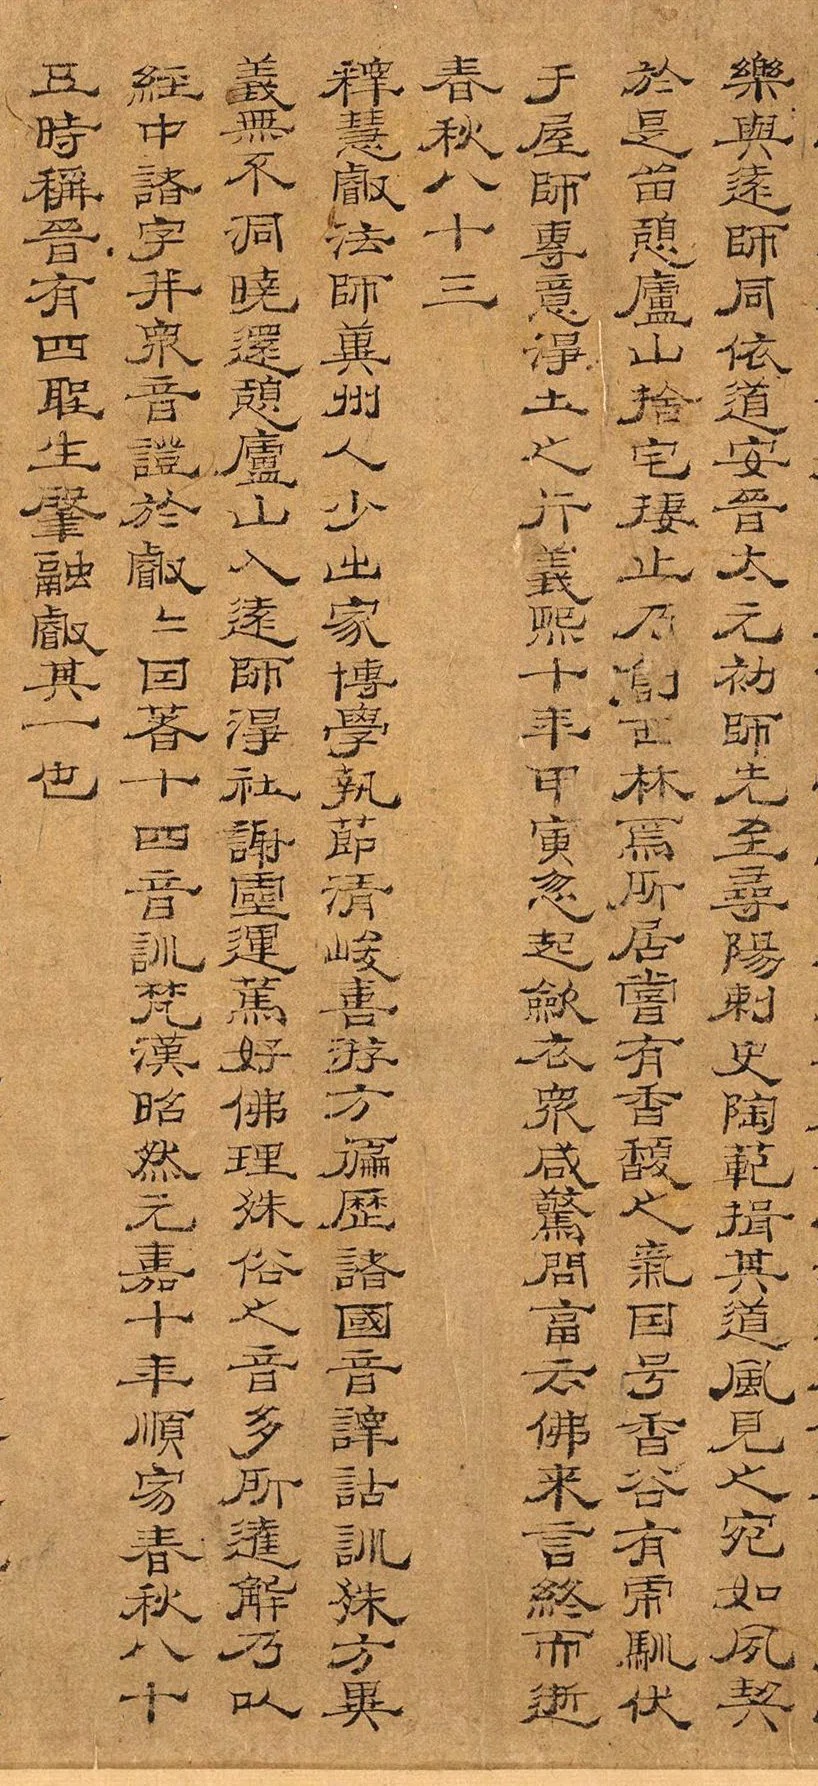 樂與遠師同依道安晉太元初師先至尋陽刺史陶範揖其道風見之宛如夙契
於是留憩廬山捨宅捿止乃創西林為所居嘗有香馥之氣因号香谷有虎馴伏
于屋師專意淨土之行義熙十年甲寅忽起斂衣眾咸驚問富云佛来言終而逝
春秋八十三
釋慧叡法師兾州人少出家博學執節清峻喜游方徧歷諸國音譯詁訓殊方異
義無不洞曉還憩廬山入遠師淨社謝靈運篤好佛理殊俗之音多所達解乃以
經中諸字并眾音證於叡〻因著十四音訓梵漢昭然元嘉十年順寂春秋八十
五時稱晉有四聖生肇融叡其一也